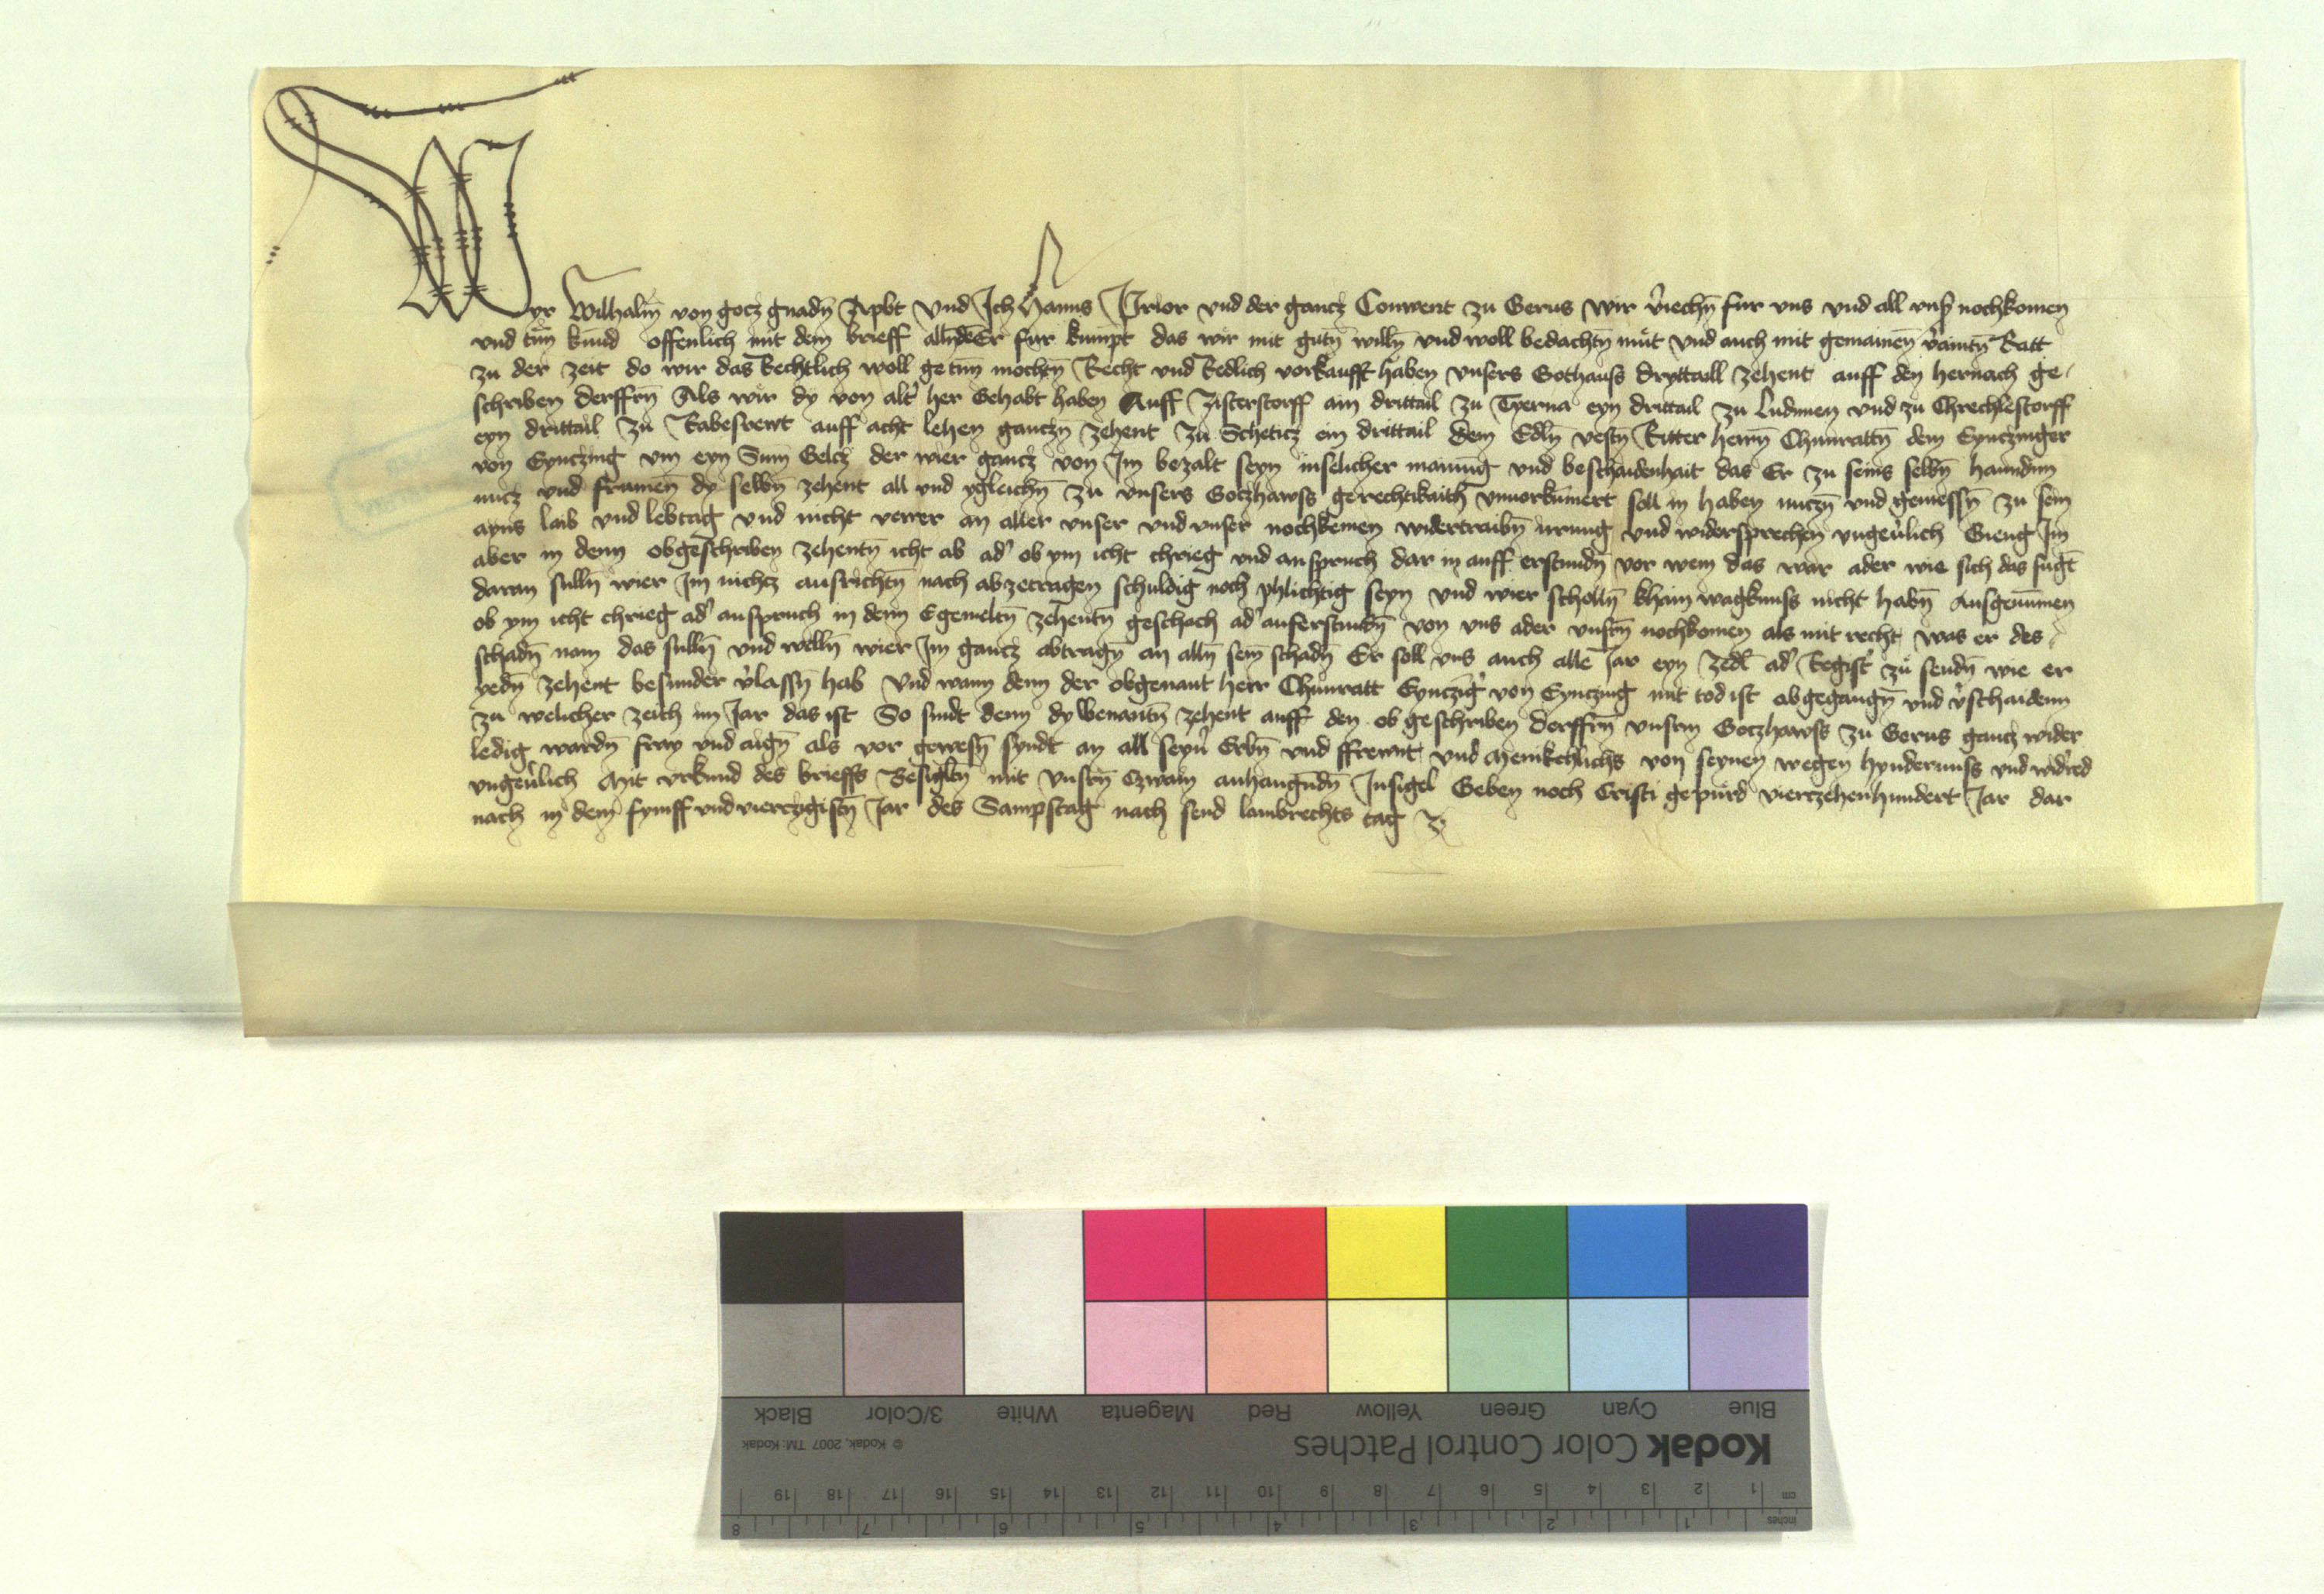 Wyr Wilhalm̄ von gotz gnadn̄ Apbt Vnd Ich Hanns Prior vnd der gancz Conuent zu Gerus Wir v̓iechn̄ fur vns vnd all vnsr̓ nochkomen
vnd tún kund offenlich mit dem brieff alln̄ den Er fur kumpt das wir mit gutn̄ willn̄ vnd woll bedachtn̄ mut vnd auch mit gemainen v̓aintn̄ Ratt
zu der zeit do wir das Rechtlich woll getun mochtn̄ Recht vnd Redlich vorkaufft haben vnsers Gothauss dryttaill zehent auff den hernach ge
schriben derffrn̄ Als wir dy von alt̓ her Gehabt haben Auff Zisterstorff ain drittail zu Tyerna eyn drittail zu Ludmen vnd zu Chrechlestorff
eyn drittail zu Rabesrewt auff acht lehen ganczn zehent zu Scheticz ein drittail dem Edln̄ vestn̄ Ritter herrn̄ Chunrattn̄ dem Eynczinger
von Eynczing vm eyn Sum̄ Gelcz der wier gancz von Im bezalt seyn inselicher mainu͞g vnd beschaidenhait das Er zu seins selbn̄ hanndnn
nucz vnd frumen dy selbn̄ zehent all vnd ygleichn̄ zu vnsers Goczhawss gerechtikaith vnuorkumert soll in haben nuczn̄ vnd geniessn̄ zu sein
ayns laib vnd lebtag vnd nicht verrer an aller vnser vnd vnser nochkemen widertraibn̄ irrung vnd widersprechen vngeu̓lich Gieng Im
aber in denn obgeschriben zehentn̄ icht ab ad̓ ob ym icht chrieg vnd anspruch dar in auff erstundn̄ vor wem das war ader wie sich das fugt
daran sulln̄ wier Im nichcz ausrichtn̄ nach abzetragen schuldig noch phlichtig seyn vnd wier scholln̄ khain wagknuss nicht habn̄ Ausgenumen
ob ym icht chrieg ad̓ anspruch in denn Egemeltn̄ zehentn̄ geschach ad̓ auferstundn̄ von vns ader vnsrn̄ nochkomen als mit recht was er des
schadn̄ nam das sulln̄ vnd welln̄ wier Im gancz abtragn̄ an alln̄ sein schadn̄ Er soll vns auch alle Iar eyn zedl ad̓ Regist̓ zu sendn̄ wie er
yedn̄ zehent besunder v̓lassn̄ hab Vnd wann denn der obgenant herr Chunratt Eynczig̓ von Eynczing mit tod ist abgegangn̄ vnd v̓schaidenn
zu welicher zeith im Iar das ist So sindt denn dy benantn̄ zehent auff den obgeschriben derffrn̄ vnserm Goczhawss zu Gerus gancz wider
ledig wardn̄ fray vnd aign̄ als vor gewesn̄ syndt an all seyn̓ Erbn̄ vnd ffrewnt vnd menikchlichs von seynen wegen hyndernuss vnd wid̓red
vngeu̓lich Mit vrkund des brieffs Besigltn̄ mit vnsrn̄ Czwain anhangundn̄ Insigel Geben noch Cristi gepurd vierczehenhundert Iar dar
nach in dem fymff vnd vierczigistn̄ Iar des Sampstag nach send lambrechts tag
Blue Cyan Green Yellow Red Magenta White 3/Color Black
Kodak Color Control Patches
© Kodak, 2007 TM: Kodak
cm 1 2 3 4 5 6 7 8 9 10 11 12 13 14 15 16 17 18 19
inches 1 2 3 4 5 6 7 8